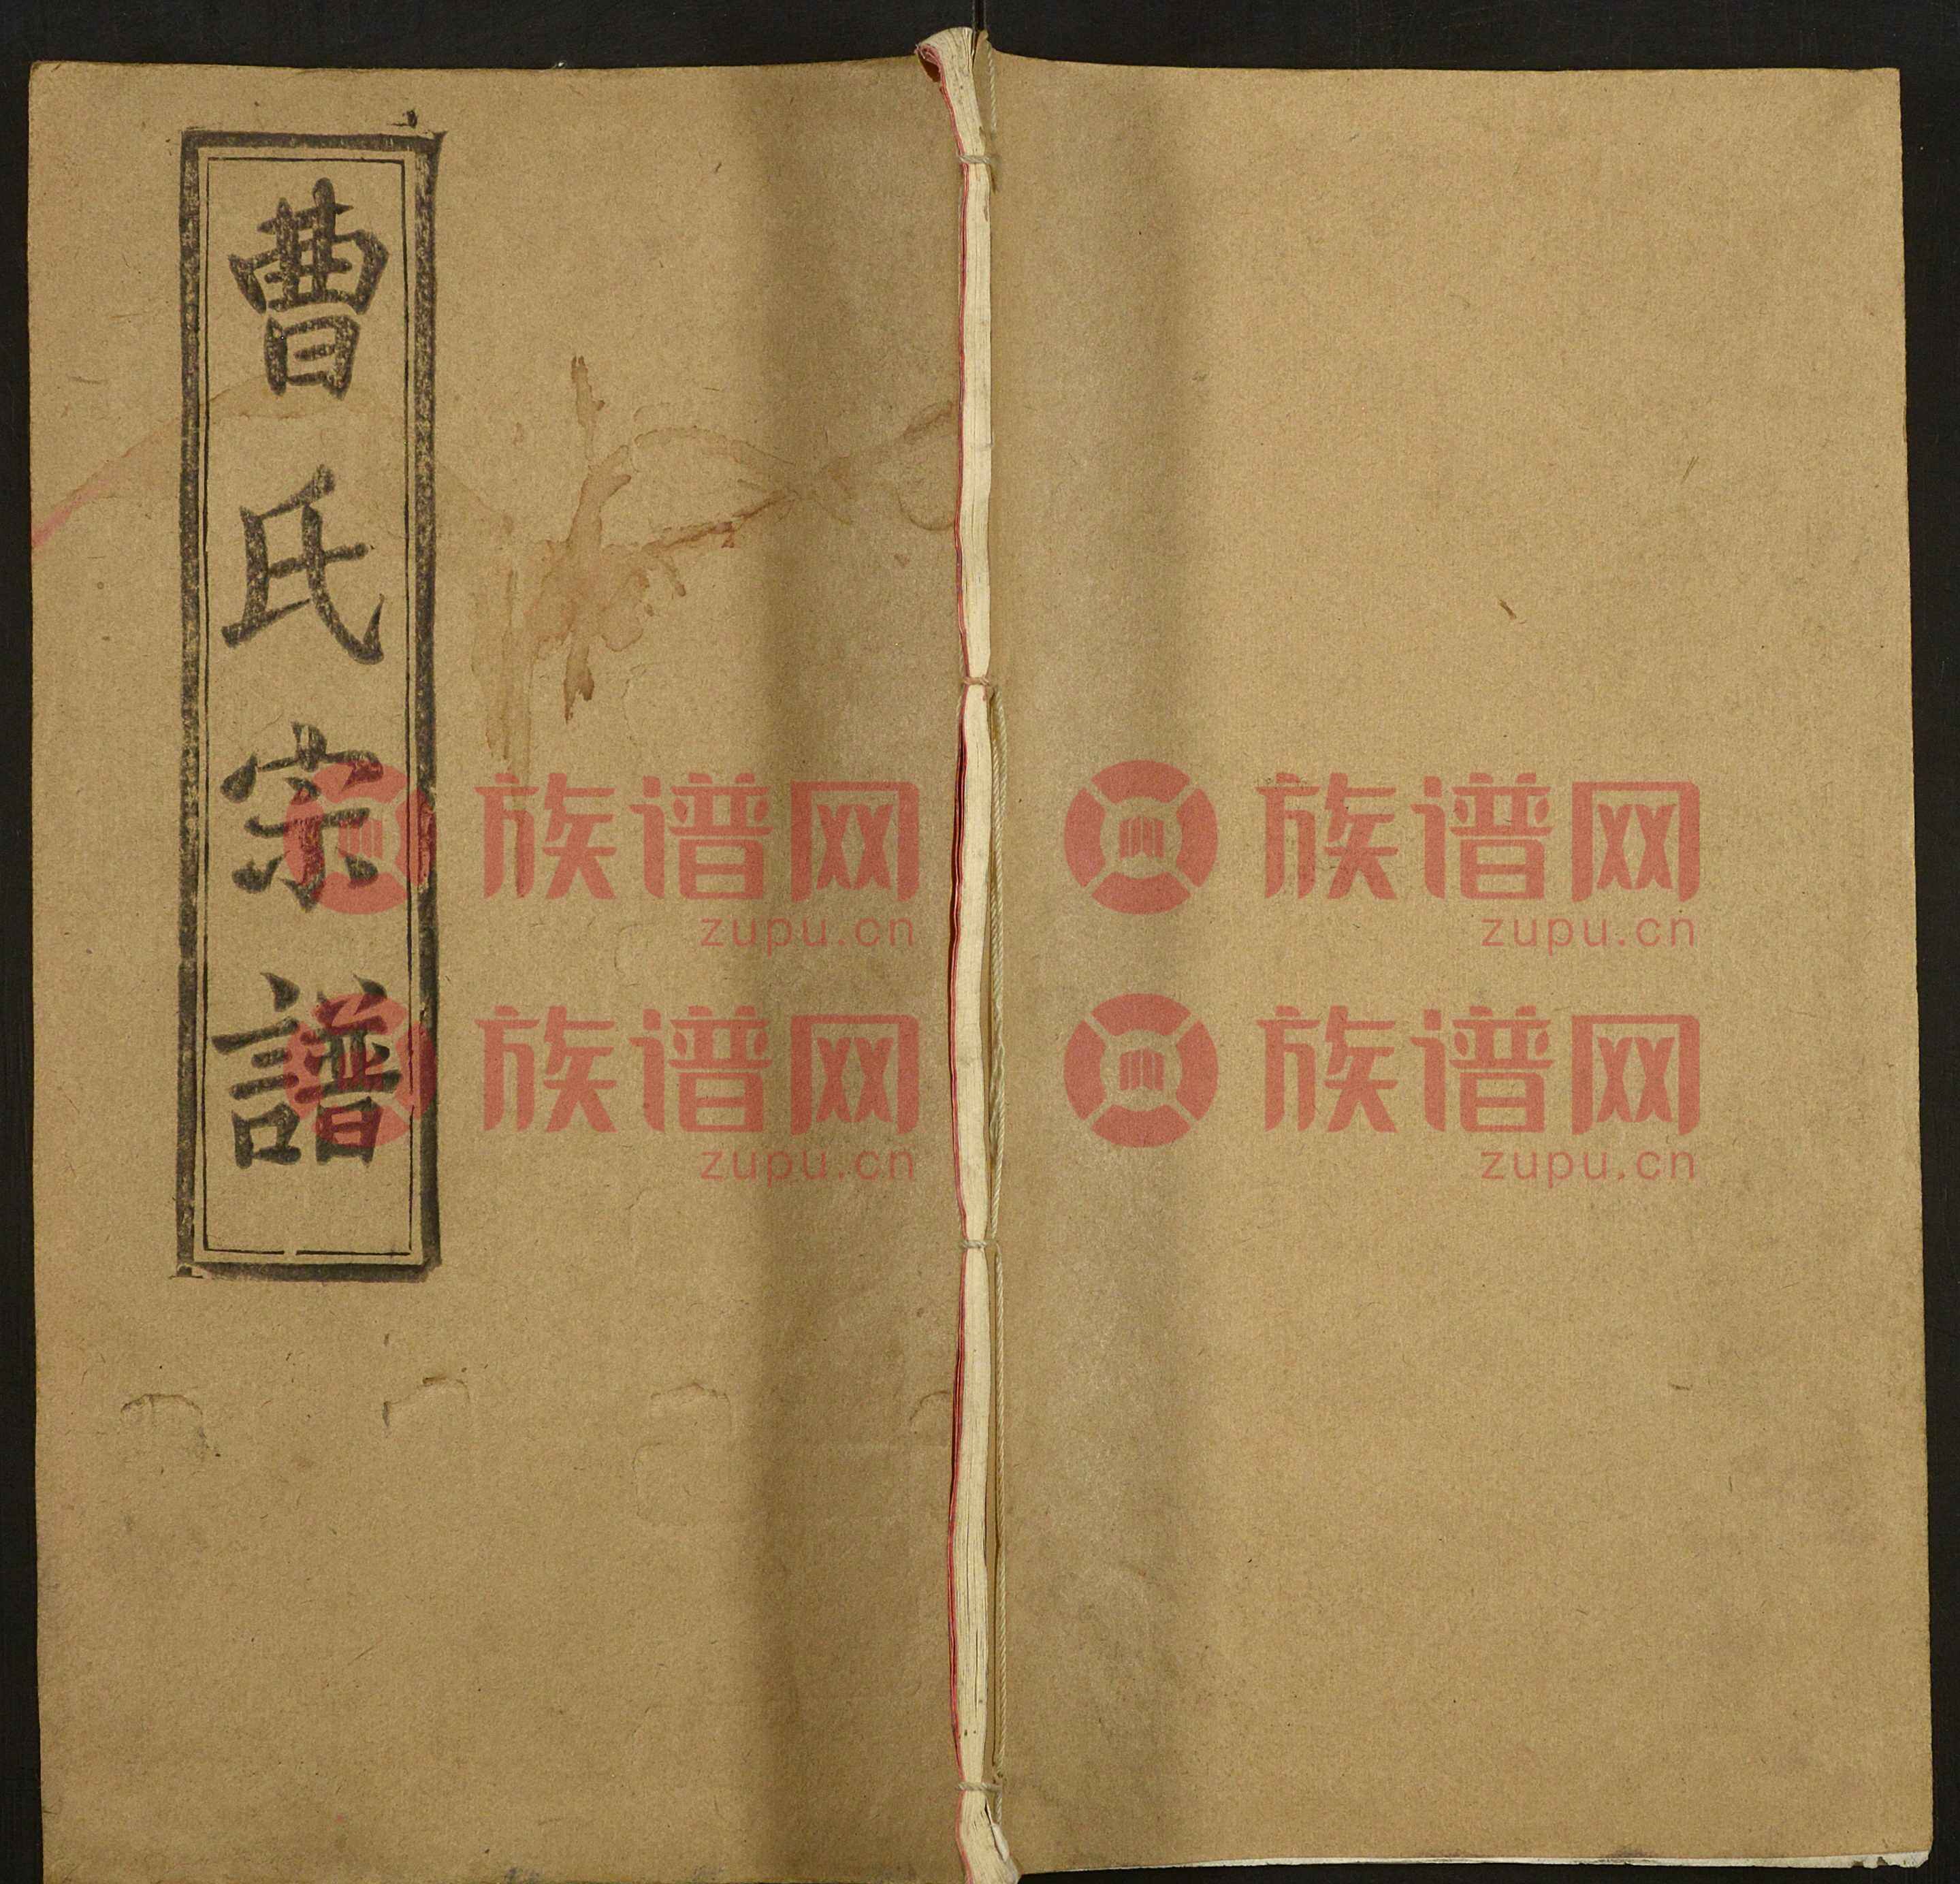 曹氏宗譜
族谱网 族谱网
zupu.cn zupu.cn
族谱网 族谱网
zupu.cn zupu.cn